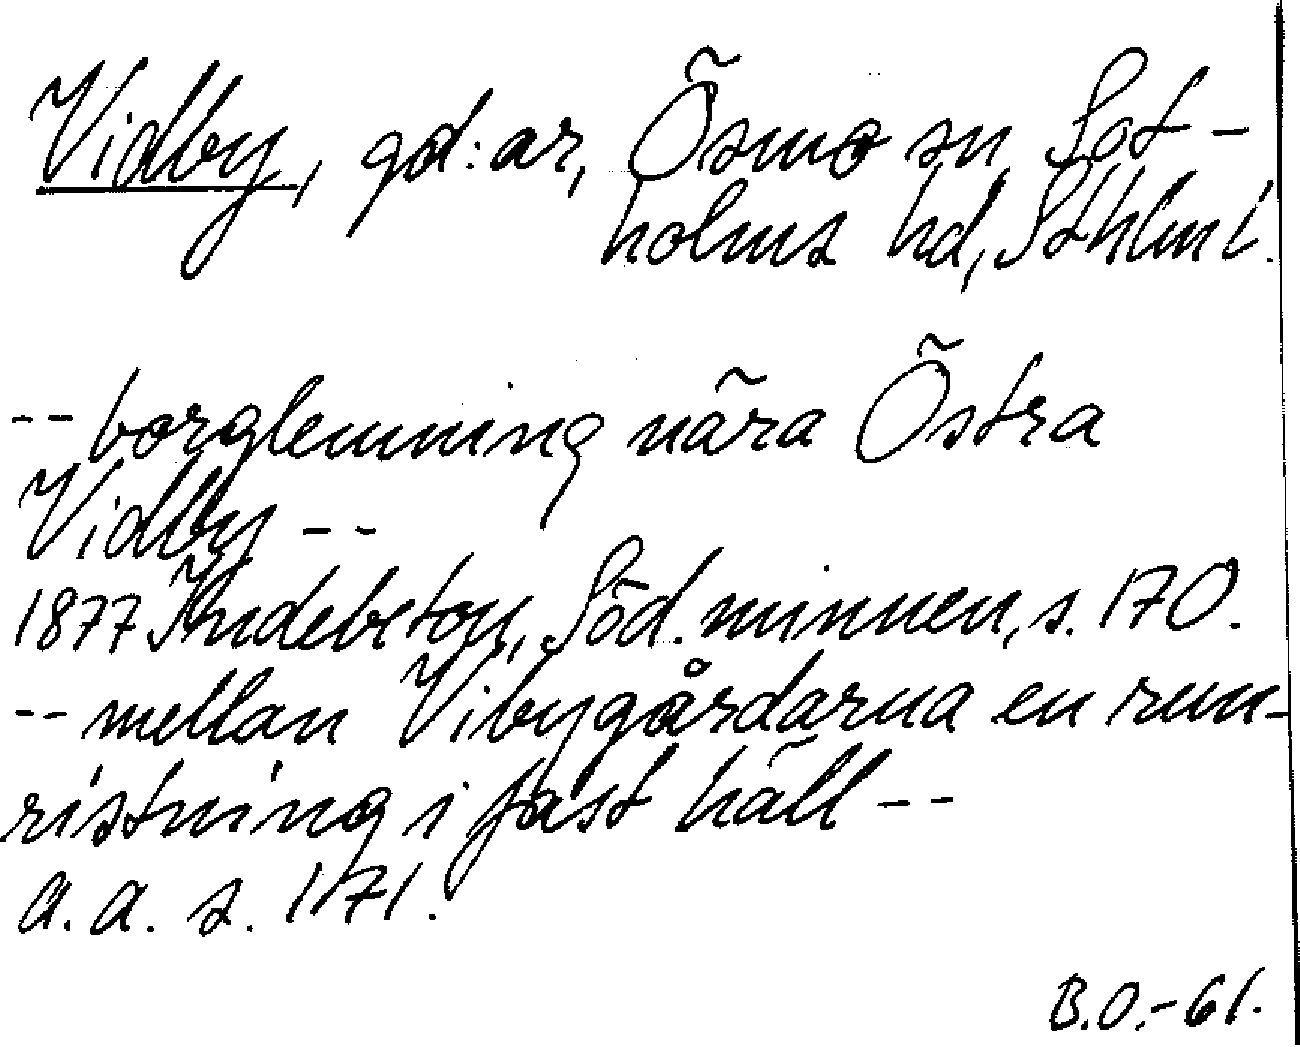 Vidby, gd:ar, Ösmo sn Sot-
holms hd, Sthlms l.
-- borglemning nära Östra
Vidby --
1877 Indebetou, Söd. minnen, s. 170.
-- mellan Vibygårdarna en run-
ristning i fast häll --
A. a. s. 171.
B.O.-61.